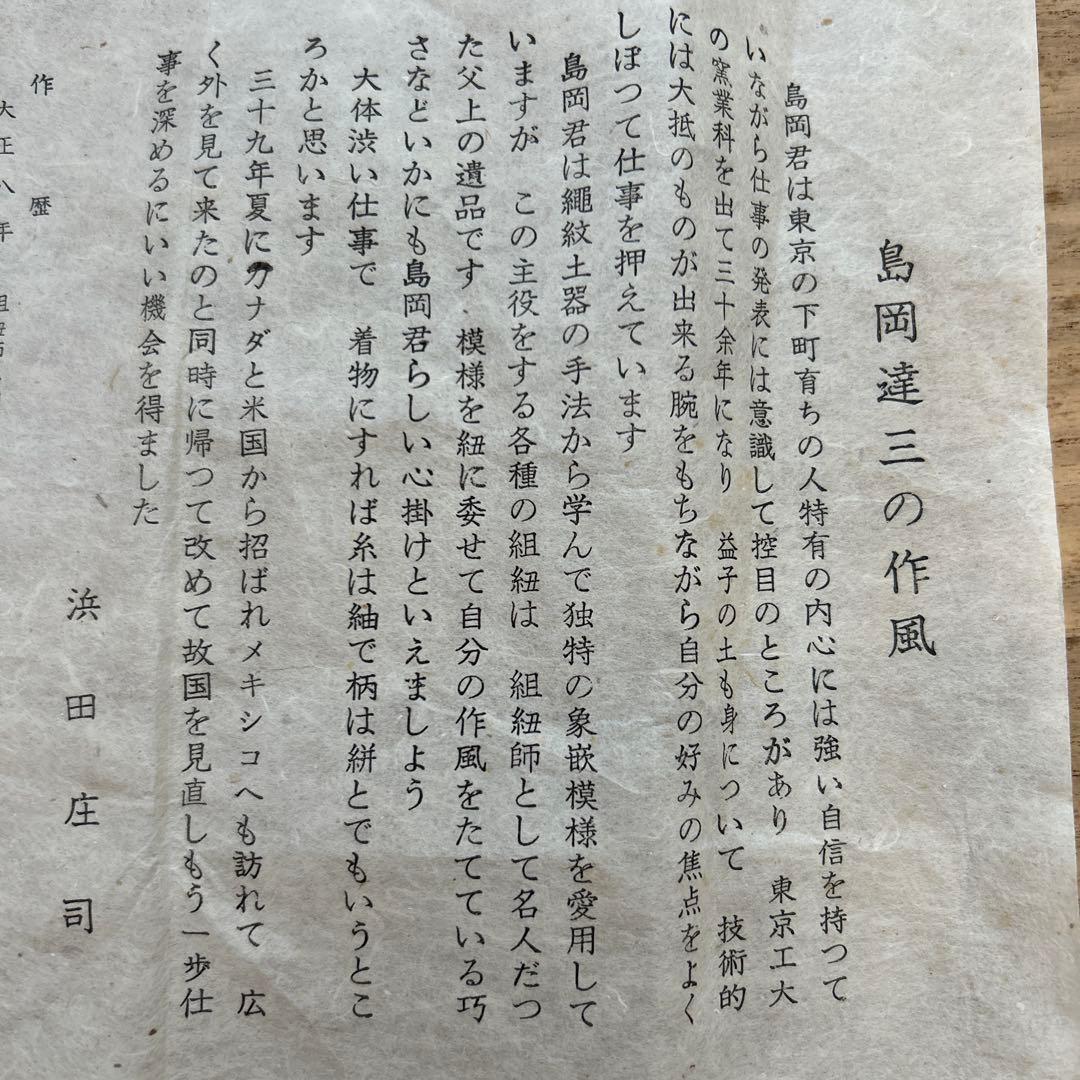 島岡達三の作風
島岡君は東京の下町育ちの人特有の内心には強い自信を持つて
いながら仕事の発表には意識して控目のところがあり　東京工大
の窯業科を出て三十余年になり　益子の土も身について　技術的
には大抵のものが出来る腕をもちながら自分の好みの焦点をよく
しぼつて仕事を押えています
島岡君は繩紋土器の手法から学んで独特の象嵌模様を愛用して
いますが　この主役をする各種の組紐は　組紐師として名人だつ
た父上の遺品です　模様を紐に委せて自分の作風をたてている巧
さなどいかにも島岡君らしい心掛けといえましよう
大体渋い仕事で　着物にすれば糸は紬で柄は絣とでもいうとこ
ろかと思います
三十九年夏にカナダと米国から招ばれメキシコへも訪れて　広
く外を見て来たのと同時に帰つて改めて故国を見直しもう一歩仕
事を深めるにいい機会を得ました
浜田庄司
作歴
大正八年